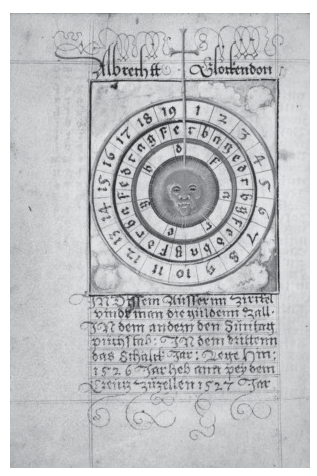 Albrechtt Glockendon
1 2 3 4 5 6 7 8 9 10 11 12 13 14 15 16 17 18 19
IN Dissem Ausserm Zirckel
vindt man die güldenn Zall.
IN dem andern den Suntag
puchstab: IN dem drittenn
das Schalt Jar: Lege Hin:
1526 Jar heb ann pey dem
Creutz zuzellen 1527 Jar